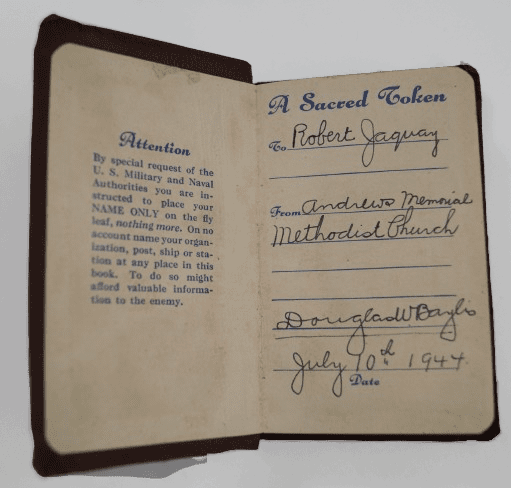 Attention
By special request of the
U. S. Military and Naval
Authorities you are in-
structed to place your
NAME ONLY on the fly
leaf, nothing more. On no
account name your organ-
ization, post, ship or sta-
tion at any place in this
book. To do so might
afford valuable informa-
tion to the enemy.
A Sacred Token
To Robert Jaquay
From Andrews Memorial
Methodist Church
Douglas W. Baylis
July 10th 1944
Date